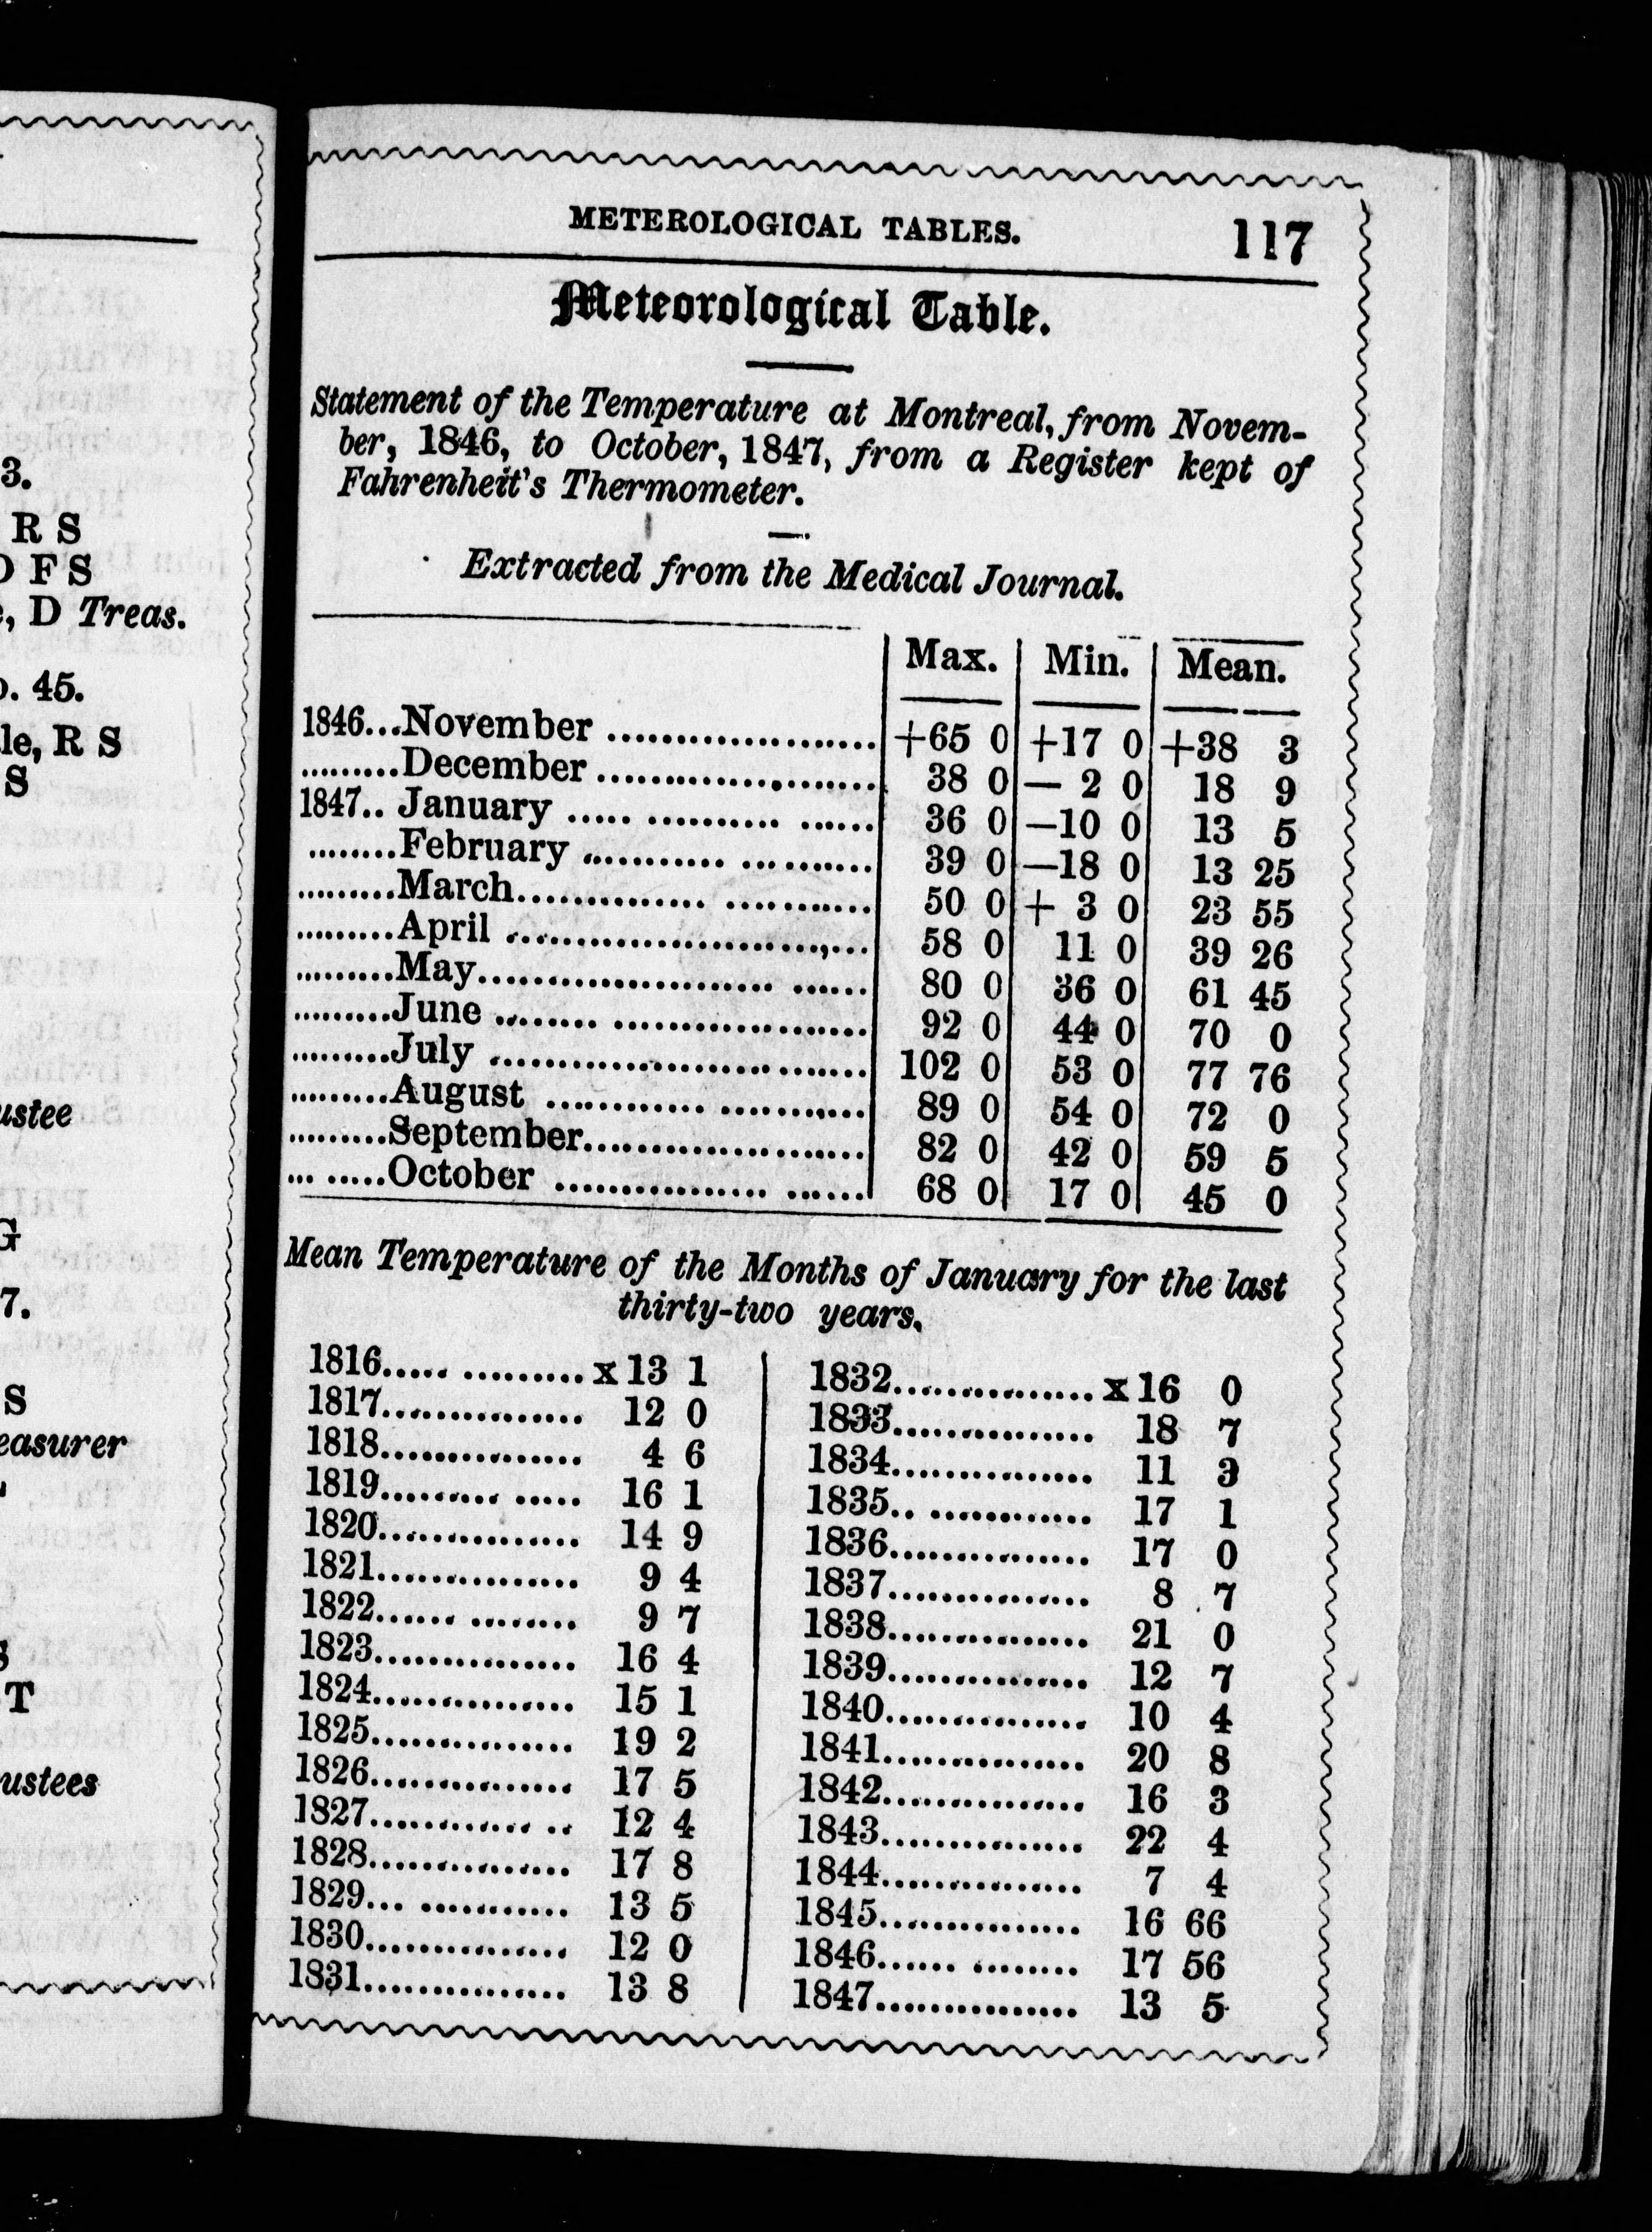 3.
R S
F S
, D Treas.
. 45.
le, R S
S
ustee
G
7.
S
easurer
T
ustees
METEROLOGICAL TABLES. 117
Meteorological Table.
Statement of the Temperature at Montreal, from Novem-
ber, 1846, to October, 1847, from a Register kept of
Fahrenheit's Thermometer.
Extracted from the Medical Journal.
Max. Min. Mean.
1846...November .................... +65 0 +17 0 +38 3
.........December ..................... 38 0 — 2 0 18 9
1847.. January ..... .......... ...... 36 0 —10 0 13 5
........February ........... .......... 39 0 —18 0 13 25
.........March.............. ........... 50 0 + 3 0 23 55
.........April ......................,... 58 0 11 0 39 26
.........May...................... ...... 80 0 36 0 61 45
.........June ........ ................... 92 0 44 0 70 0
.........July ............................ 102 0 53 0 77 76
.........August ............ ........... 89 0 54 0 72 0
.........September..................... 82 0 42 0 59 5
... .....October ................ ...... 68 0 17 0 45 0
Mean Temperature of the Months of January for the last
thirty-two years.
1816..... .........x 13 1
1817............... 12 0
1818............... 4 6
1819......... ..... 16 1
1820............... 14 9
1821............... 9 4
1822...... ........ 9 7
1823............... 16 4
1824............... 15 1
1825............... 19 2
1826............... 17 5
1827............ .. 12 4
1828............... 17 8
1829... ........... 13 5
1830............... 12 0
1831............... 13 8
1832...............x 16 0
1833............... 18 7
1834............... 11 3
1835.. ............ 17 1
1836............... 17 0
1837............... 8 7
1838............... 21 0
1839............... 12 7
1840............... 10 4
1841............... 20 8
1842............... 16 3
1843............... 22 4
1844............... 7 4
1845............... 16 66
1846...... ........ 17 56
1847............... 13 5